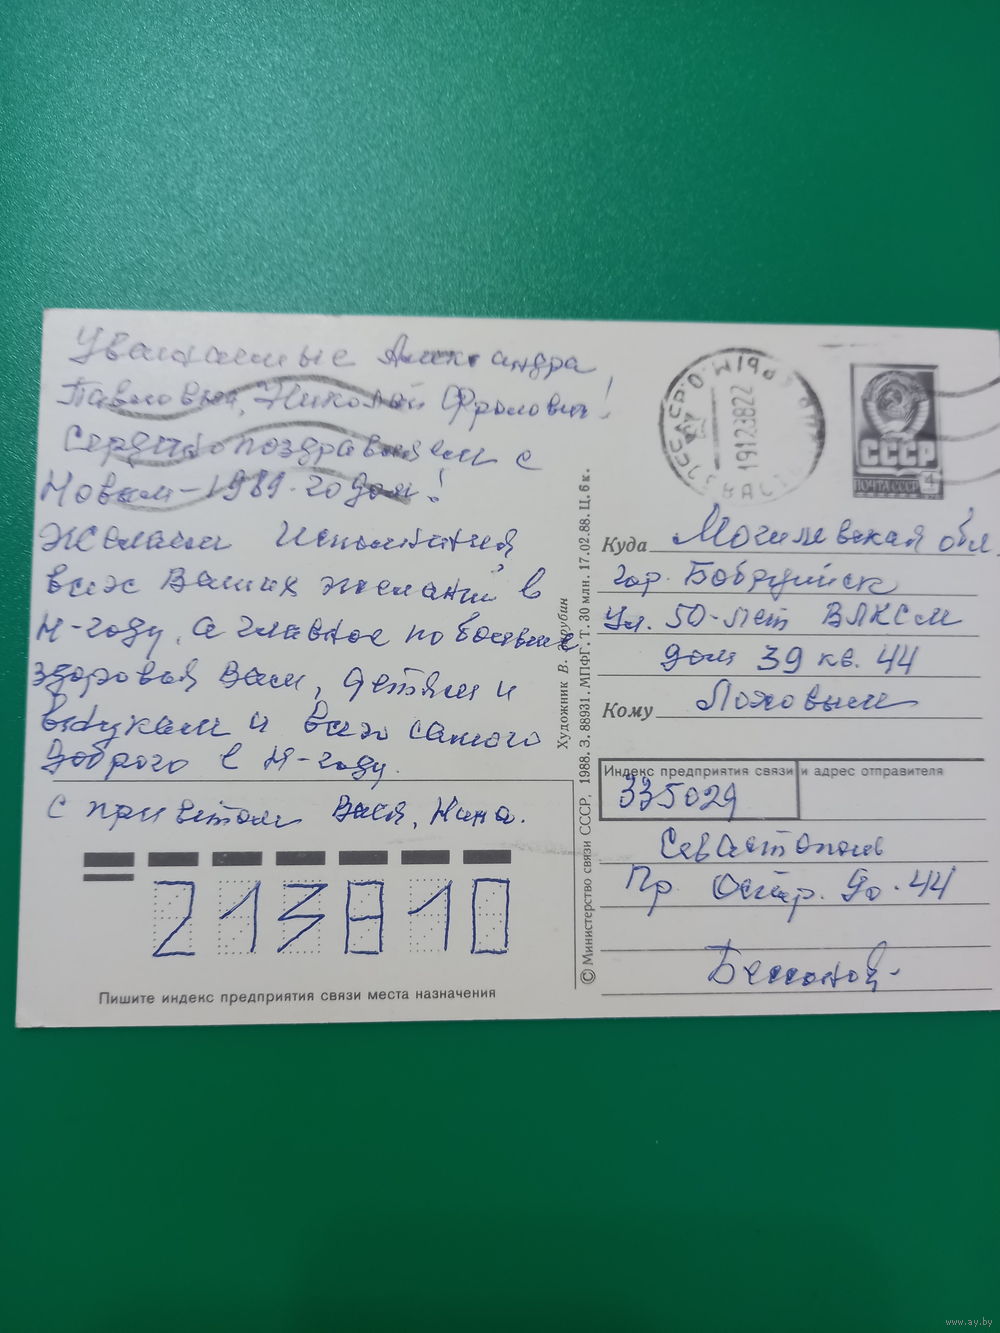 Уважаемые Александра
Павловна, Николай Фролович!
Сердечно поздравляем с
Новым-1989-годом!
Желаем исполнения
всех Ваших желаний в
Н-году, а главное побольше
здоровья Вам, детям и
внукам и всего самого
доброго в Н-году.
С приветом Вася, Нина.
213810
Пишите индекс предприятия связи места назначения
Художник В. Зарубин
© Министерство связи СССР, 1988. З. 88931. МПФГ. Т. 30 млн. 17.02.88. Ц. 6 к.
19128822
СССР
ПОЧТА СССР 4
Куда Могилевская обл.
гор. Бобруйск
ул. 50-лет ВЛКСМ
дом 39 кв. 44
Кому Лоховым
Индекс предприятия связи и адрес отправителя
335029
Севастополь
Пр. 44
www.ay.by